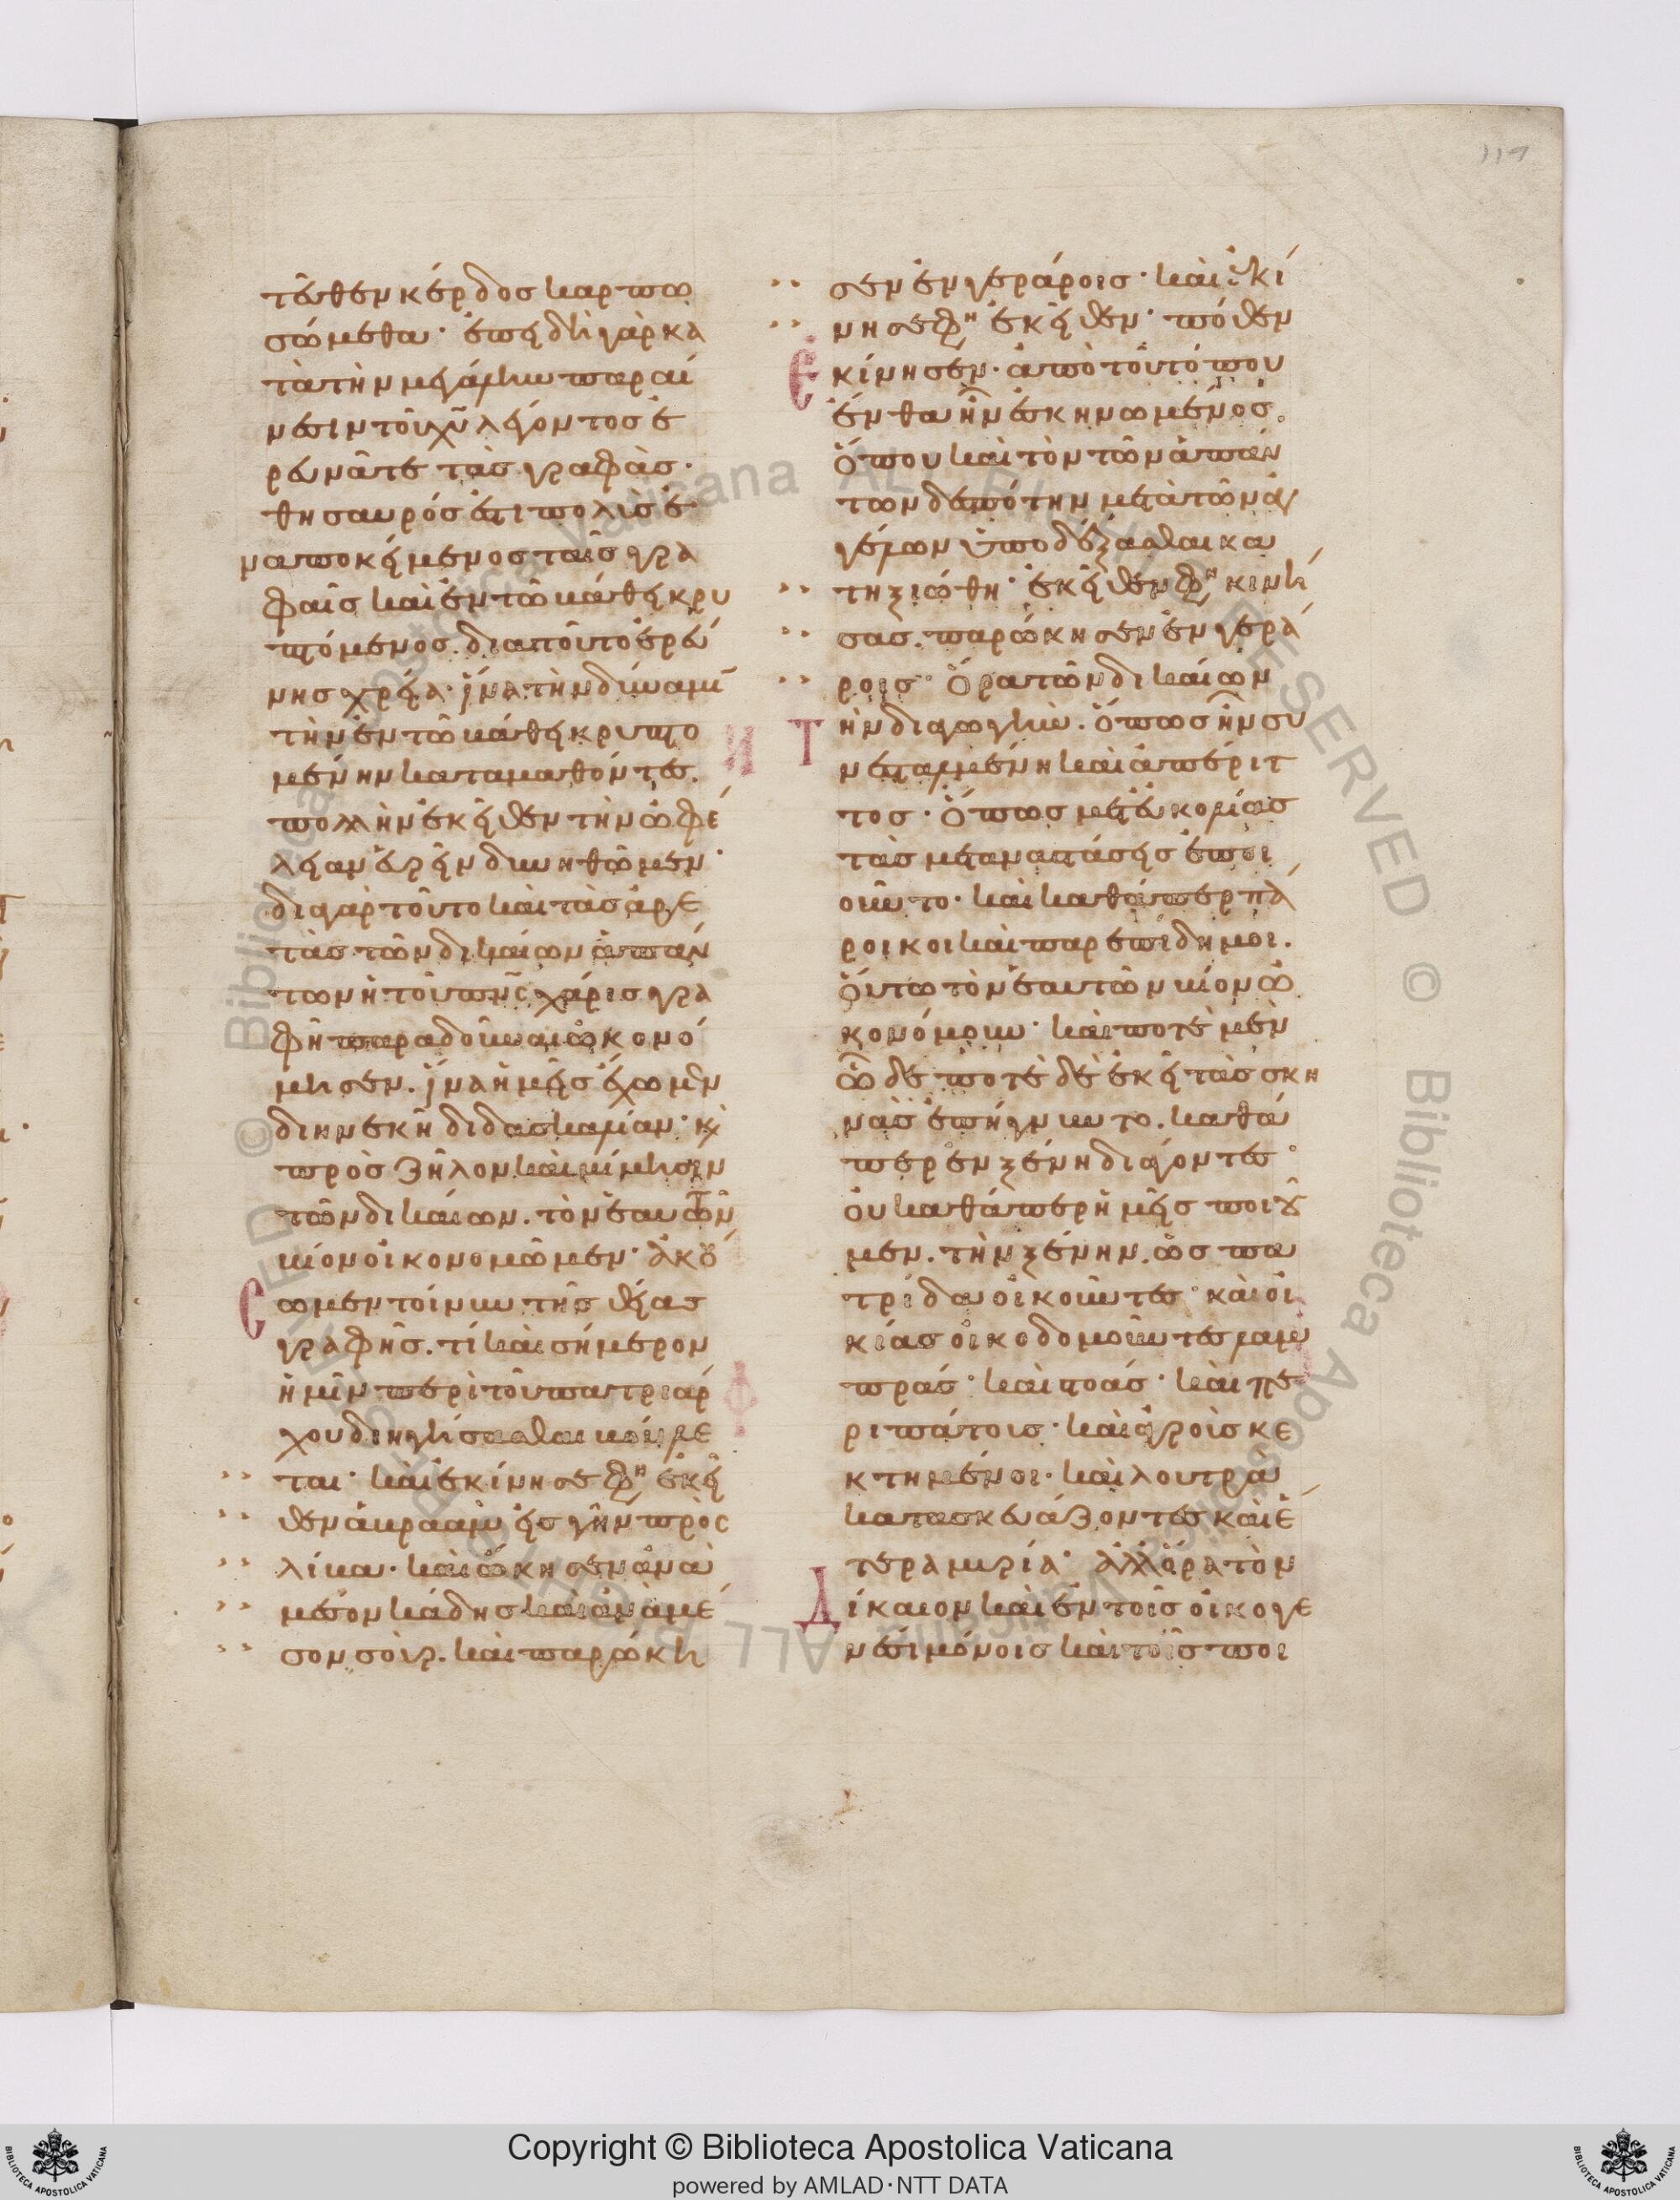 117
τεῦθεν κέρδος καρπω
σώμεθα· ἐπειδὴ γὰρ κα
τὰ τὴν μεγάλην παραί
νεσιν τοῦ χῦ λέγοντος ἐ
ρευνᾶτε τὰς γραφάς·
θησαυρός ἐστι πολὺς ἐ
ναποκείμενος ταῖς γρα
φαῖς καὶ ἐν τῶ βάθει κρυ
πτόμενος. διατοῦτο ἐρεύ
νης χρεία· ἵνα τὴν δύναμιν
τὴν ἐν τῶ βάθει κρυπτο
μένην καταμαθόντες.
πολλὴν ἐκεῖθεν τὴν ὠφέ
λειαν εὑρεῖν δυνηθῶμεν·
διγὰρ τοῦτο καὶ τὰς ἀρε
τὰς τῶν δικαίων ἁπάν
των ἡ τοῦ πνς χάρις γρα
φῆ παραδοῦναι ὠκονό
μησεν. ἵνα ἡμεῖς ἔχωμεν
διηνεκῆ διδασκαλίαν· κὶ
πρὸς ζῆλον καὶ μίμησιν
τῶν δικαίων. τὸν ἑαυτῶν
βίον οἰκονομῶμεν· ἀκού
Cωμεν τοίνυν τῆς θείας
γραφῆς. τί καὶ σήμερον
ἡμῖν περὶ τοῦ πατριάρ
χου διηγήσασθαι βούλε
ται· καὶ ἐκίνησε φη ἐκεῖ
θεν ἁβραὰμ εἰς γῆν πρὸς
λίβα· καὶ ὤκησεν ἀνὰ
μέσον κάδης καὶ ἀνὰ μέ
σον σούρ. καὶ παρώκη
σεν ἐν γεράροις· καὶ ἐκί
νησε φη ἐκεῖθεν· πόθεν
Ἐκίνησεν· ἀπὸ τοῦ τόπου
ἔνθα ἦν ἐσκηνωμένος.
ὅπου καὶ τὸν τῶν ἁπάν
των δεσπότην μετὰ τῶν ἀγ
γέλων ὑποδέξασθαι κα
τηξιώθη· ἐκεῖθεν φη κινή
σας. παρώκησεν ἐν γερά
ροις· ὅρα τῶν δικαίων
Τὴν διαγωγὴν. ὅπως ἦν συ
νεσταλμένη καὶ ἀπέριτ
τος· ὅπως μετ' εὐκολίας
τὰς μεταναστάσεις ἐποι
οῦντο· καὶ καθάπερ πά
ροικοι καὶ παρεπίδημοι.
οὕτω τὸν ἑαυτῶν βίον ὠ
κονόμουν· καὶ ποτὲ μὲν
ὧδε ποτὲ δὲ ἐκεῖ τὰς σκη
νὰς ἐπήγνυντο. καθά
περ ἐν ξένη διάγοντες·
οὐ καθάπερ ἡμεῖς ποιοῦ
μεν. τὴν ξένην. ὡς πα
τρίδα οἰκοῦντες· καὶ οἰ
κίας οἰκοδομοῦντες λαμ
πράς· καὶ στοάς· καὶ πε
ριπάτους· καὶ ἀγροὺς κε
κτημένοι· καὶ λουτρὰ
κατασκευάζοντες καὶ ἕ
τερα μυρία· ἀλλ' ὅρα τὸν
Δίκαιον καὶ ἐν τοῖς οἰκογε
νέσι μόνοις καὶ τοῖς ποι
Copyright © Biblioteca Apostolica Vaticana
powered by AMLAD·NTT DATA